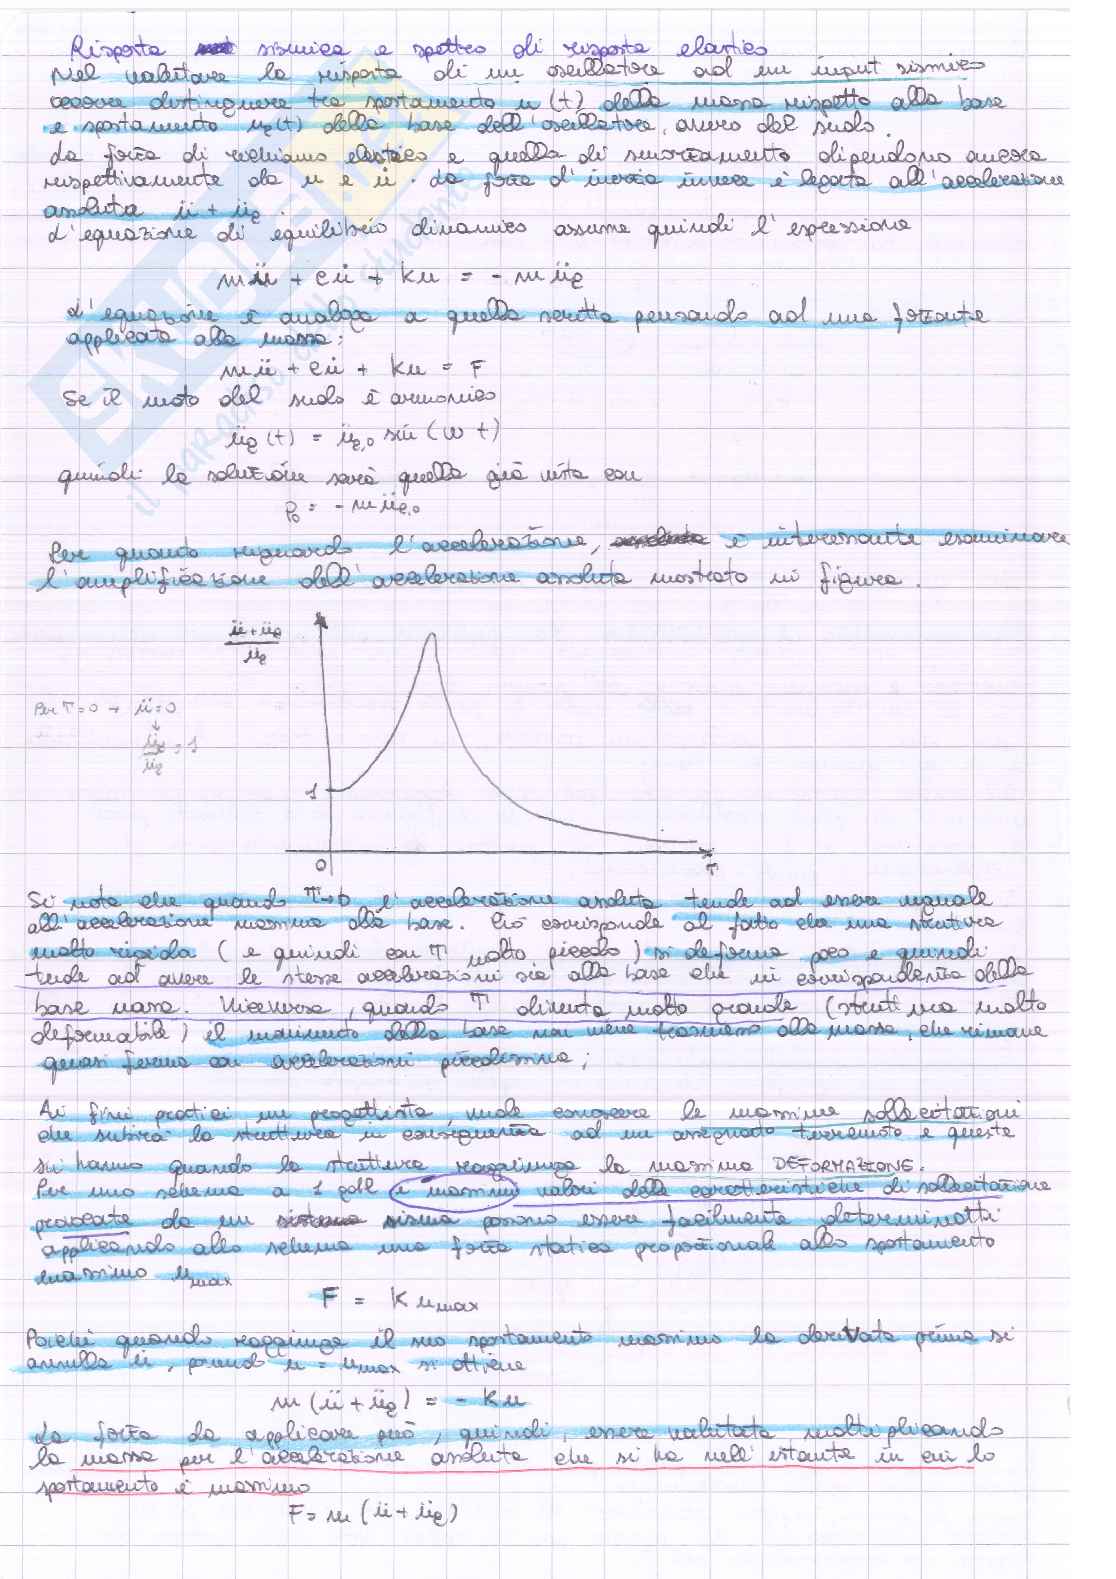 Risposta sismica e spettro di risposta elastico
Nel valutare la risposta di un oscillatore ad un input sismico
occorre distinguere tra spostamento u(t) della massa rispetto alla base
e spostamento ug(t) della base dell'oscillatore, ovvero del suolo.
La forza di richiamo elastico e quella di smorzamento dipendono ancora
rispettivamente da u e u̇. La forza d'inerzia invece è legata all'accelerazione
assoluta ü + üg.
L'equazione di equilibrio dinamico assume quindi l'espressione
mü + cu̇ + ku = - müg
L'equazione è analoga a quella scritta pensando ad una forzante
applicata alla massa:
mü + cu̇ + ku = F
Se il moto del suolo è armonico
üg(t) = üg,0 sin(ωt)
quindi la soluzione sarà quella già vista con
p0 = - müg,0
Per quanto riguarda l'accelerazione, è interessante esaminare
l'amplificazione dell'accelerazione assoluta mostrato in figura.
ü+üg
üg
Per T=0 → ü=0
↓
üg
üg = 1
1
0
T
Si nota che quando T→0 l'accelerazione assoluta tende ad essere uguale
all'accelerazione massima alla base. Ciò corrisponde al fatto che una struttura
molto rigida (e quindi con T molto piccolo) si deforma poco e quindi
tende ad avere le stesse accelerazioni sia alla base che in corrispondenza della
base massa. Viceversa, quando T diventa molto grande (struttura molto
deformabile) il movimento della base non viene trasmesso alla massa, che rimane
quasi ferma con accelerazioni piccolissime;
Ai fini pratici un progettista vuole conoscere le massime sollecitazioni
che subirà la struttura in conseguenza ad un assegnato terremoto e queste
si hanno quando la struttura raggiunge la massima DEFORMAZIONE.
Per uno schema a 1 gdl i massimi valori delle caratteristiche di sollecitazione
provocate da un sisma possono essere facilmente determinati
applicando allo schema una forza statica proporzionale allo spostamento
massimo umax
F = K umax
Poiché quando raggiunge il suo spostamento massimo la derivata prima si
annulla u̇, ponendo u = umax si ottiene
m (ü + üg) = - Ku
La forza da applicare può, quindi, essere valutata moltiplicando
la massa per l'accelerazione assoluta che si ha nell'istante in cui lo
spostamento è massimo
F = m (ü + üg)